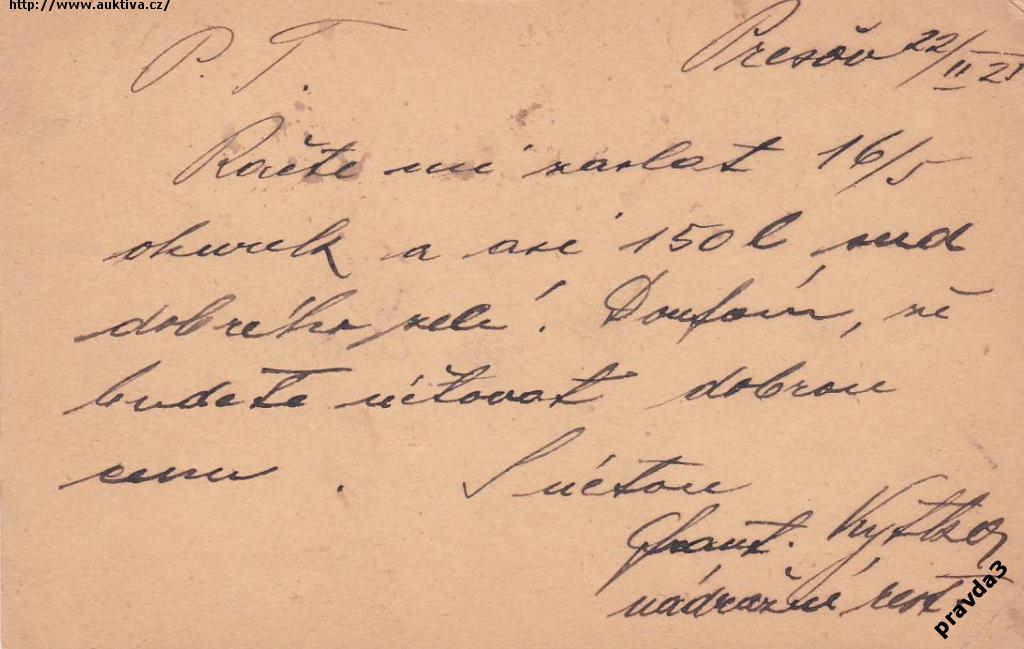 http://www.auktiva.cz/
P. T. Prešov 22/II 21
Račte mi zaslat 16/5
okurek a asi 150 l sud
dobrého zelí. Doufám, že
budete účtovat dobrou
cenu. S úctou
Frant. Kytka
nádražní rest
pravda3